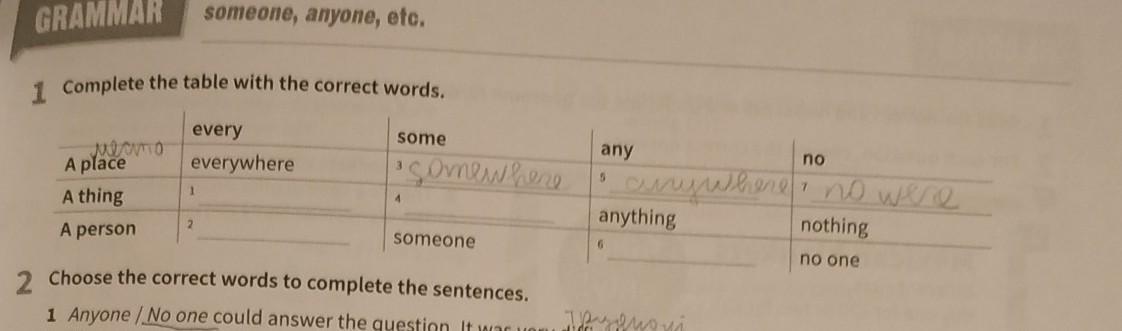 GRAMMAR someone, anyone, etc.
1 Complete the table with the correct words.
every some any no
место
A place everywhere 3 somewhere 5 anywhere 7 no were
A thing 1 4 anything nothing
A person 2 someone 6 no one
2 Choose the correct words to complete the sentences.
1 Anyone / No one could answer the question. It was very